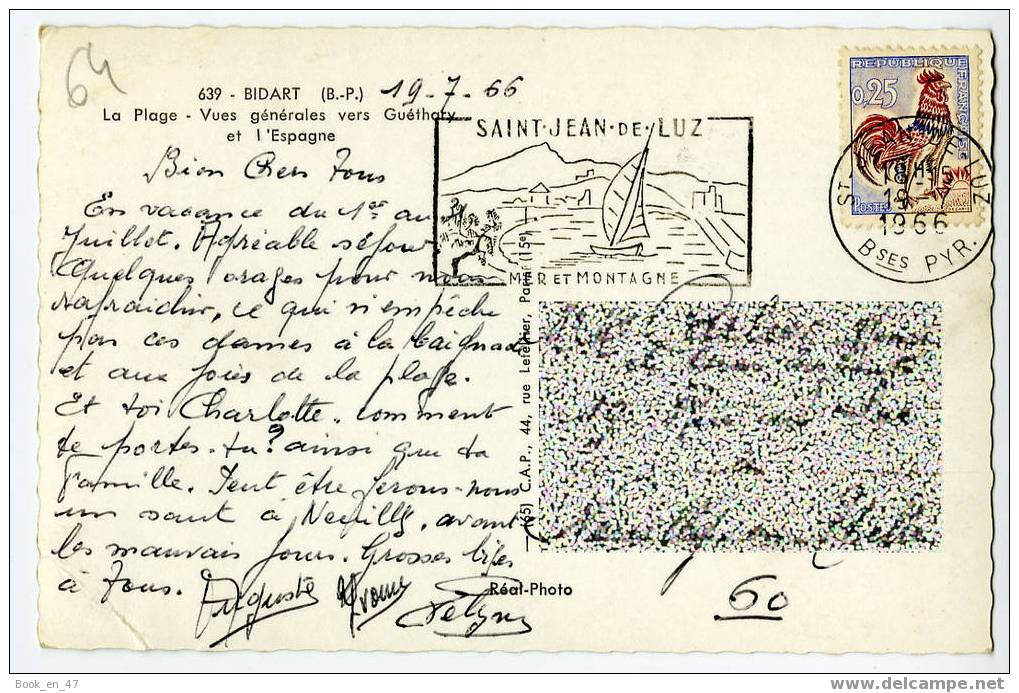 64
639 - BIDART (B.-P.) 19-7-66
La Plage - Vues générales vers Guéthary
et l'Espagne
Bien Chers Tous
En vacance du 1er au
Juillet. Agréable séjour
Quelques orages pour nous
rafraichir, ce qui n'empêche
pas ces dames à la baignade
et aux joies de la plage.
Et toi Charlotte. comment
te portes-tu? ainsi que ta
Famille. Peut être ferons-nous
un saut à Neuilly. avant
les mauvais jours. Grosses bises
à Tous. Auguste Yvonne
SAINT·JEAN·DE·LUZ
MER ET MONTAGNE
(65) C.A.P., 44, rue Letellier, Paris (15e)
Réal-Photo
REPUBLIQUE FRANÇAISE
0,25
POSTES
ST JEAN DE LUZ
1966
BSES PYR.
60
Book_en_47
delcampe.net